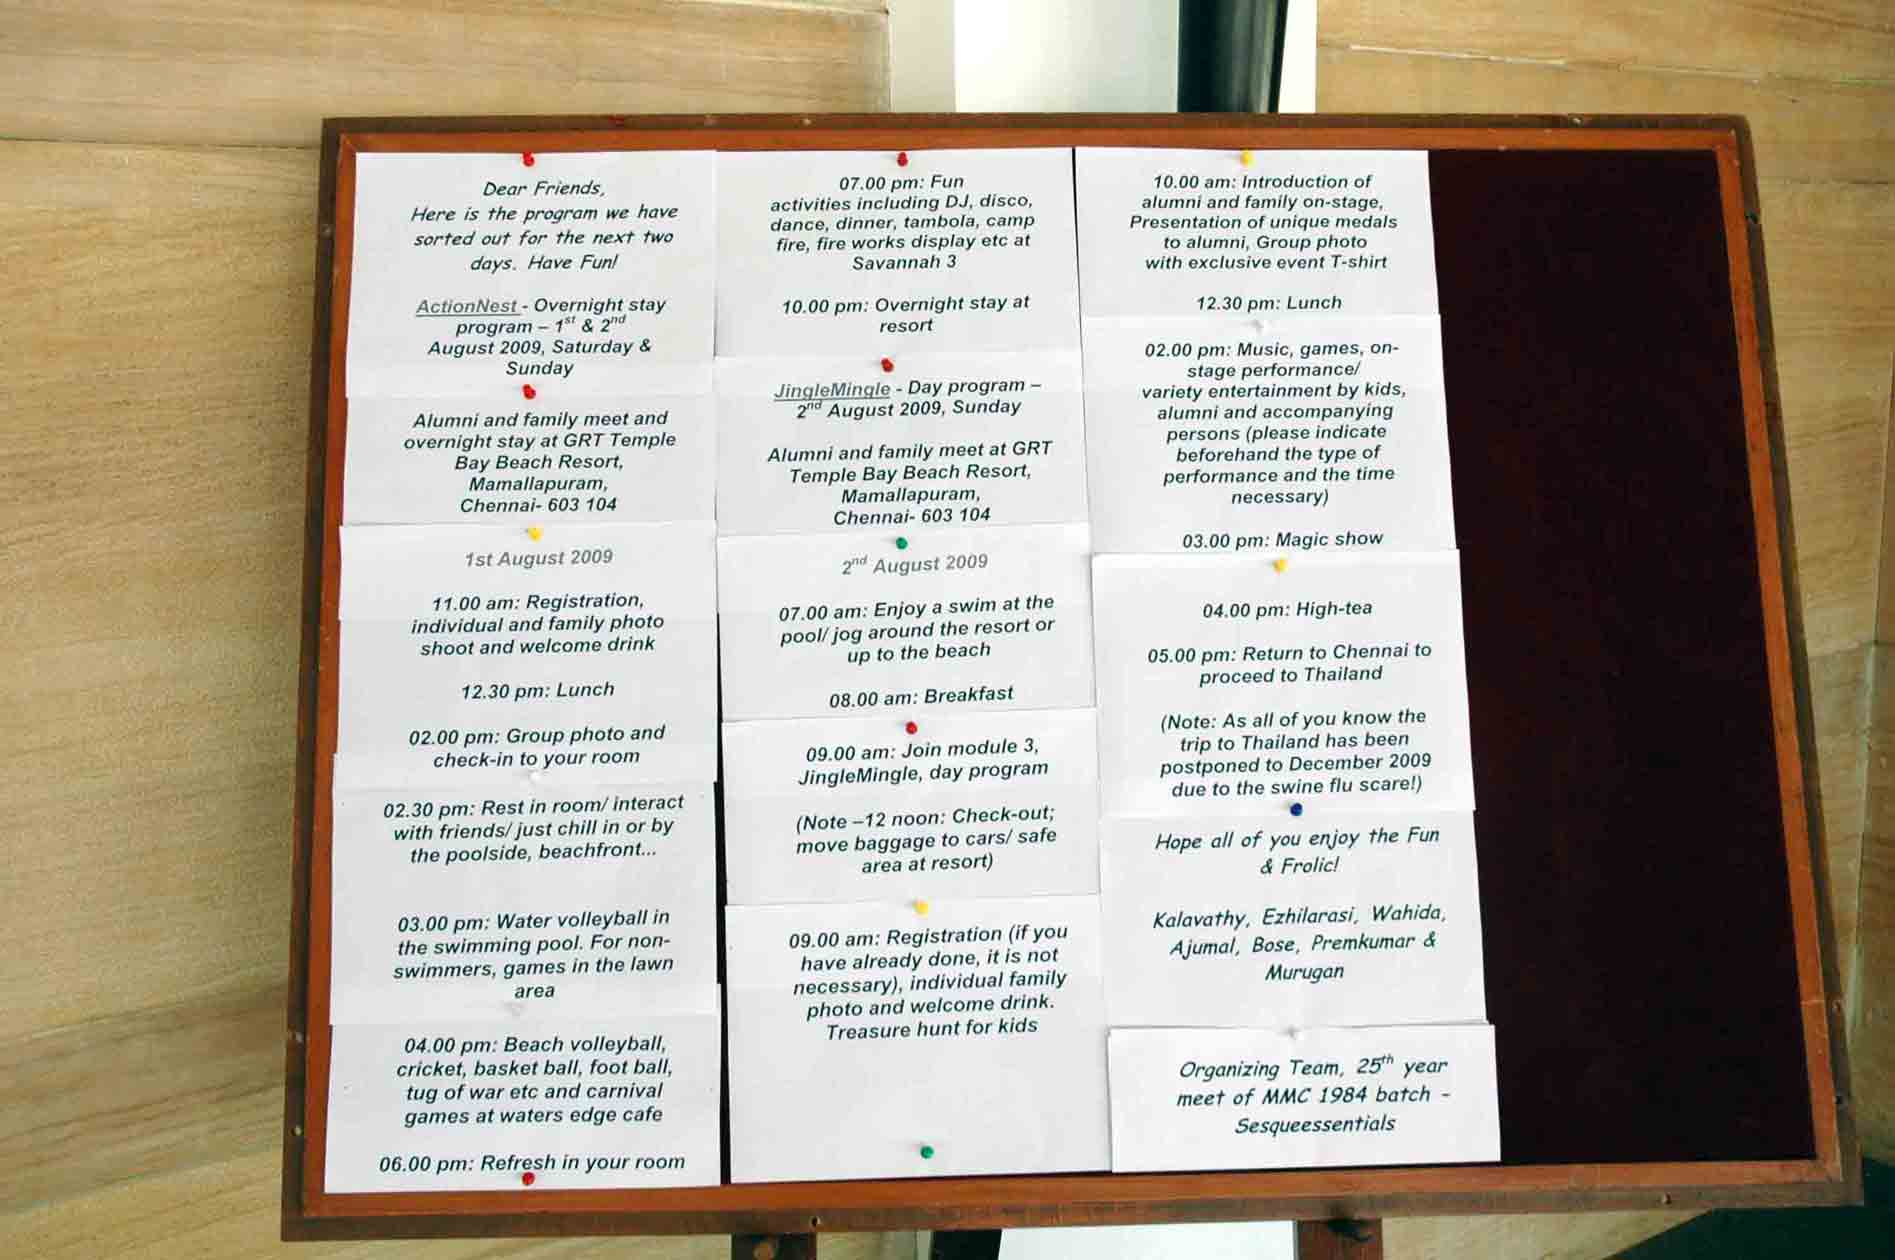 Dear Friends,
Here is the program we have
sorted out for the next two
days. Have Fun!
ActionNest - Overnight stay
program – 1st & 2nd
August 2009, Saturday &
Sunday
Alumni and family meet and
overnight stay at GRT Temple
Bay Beach Resort,
Mamallapuram,
Chennai- 603 104
1st August 2009
11.00 am: Registration,
individual and family photo
shoot and welcome drink
12.30 pm: Lunch
02.00 pm: Group photo and
check-in to your room
02.30 pm: Rest in room/ interact
with friends/ just chill in or by
the poolside, beachfront...
03.00 pm: Water volleyball in
the swimming pool. For non-
swimmers, games in the lawn
area
04.00 pm: Beach volleyball,
cricket, basket ball, foot ball,
tug of war etc and carnival
games at waters edge cafe
06.00 pm: Refresh in your room
07.00 pm: Fun
activities including DJ, disco,
dance, dinner, tambola, camp
fire, fire works display etc at
Savannah 3
10.00 pm: Overnight stay at
resort
JingleMingle - Day program –
2nd August 2009, Sunday
Alumni and family meet at GRT
Temple Bay Beach Resort,
Mamallapuram,
Chennai- 603 104
2nd August 2009
07.00 am: Enjoy a swim at the
pool/ jog around the resort or
up to the beach
08.00 am: Breakfast
09.00 am: Join module 3,
JingleMingle, day program
(Note –12 noon: Check-out;
move baggage to cars/ safe
area at resort)
09.00 am: Registration (if you
have already done, it is not
necessary), individual family
photo and welcome drink.
Treasure hunt for kids
10.00 am: Introduction of
alumni and family on-stage,
Presentation of unique medals
to alumni, Group photo
with exclusive event T-shirt
12.30 pm: Lunch
02.00 pm: Music, games, on-
stage performance/
variety entertainment by kids,
alumni and accompanying
persons (please indicate
beforehand the type of
performance and the time
necessary)
03.00 pm: Magic show
04.00 pm: High-tea
05.00 pm: Return to Chennai to
proceed to Thailand
(Note: As all of you know the
trip to Thailand has been
postponed to December 2009
due to the swine flu scare!)
Hope all of you enjoy the Fun
& Frolic!
Kalavathy, Ezhilarasi, Wahida,
Ajumal, Bose, Premkumar &
Murugan
Organizing Team, 25th year
meet of MMC 1984 batch -
Sesqueessentials